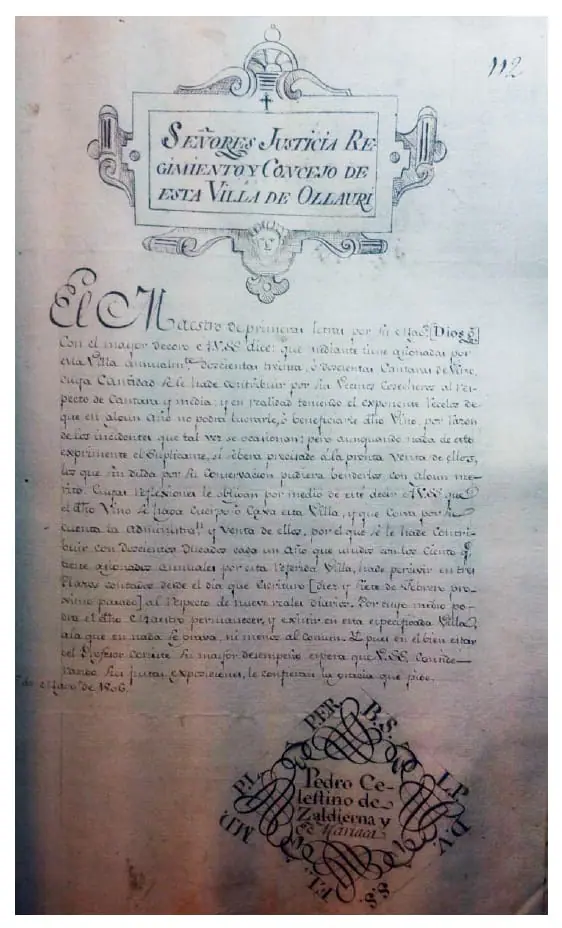 112
SEÑORES JUSTICIA RE-
GIMIENTO Y CONCEJO DE
ESTA VILLA DE OLLAURI
El Maestro de primeras letras por su Mag.d [Dios g.]
Con el mayor decoro á V.SS. dice: que mediante tiene asionadas por
esta Villa annualm.te doscientas treinta, ó doscientas Cantaras de Vino,
cuya Cantidad se le hade contribuir por sus Vecinos Cosecheros al res-
pecto de Cantara y media; y en realidad temeroso el exponente recelos de
que en algun año no podrá lucrarle, ó beneficiarle dho Vino, por razon
de los incidentes que tal vez se ocasionan; pero aunquando nada de esto
exprimente el Suplicante, si se berá precisado á la pronta Venta de ellos,
los que sin duda por su Conservacion pudiera benderlos con algun me-
rito. Cuyas reflexiones le obligan por medio de este decir á V.SS. que
el dho Vino se haga Cuerpo ó Caxa esta Villa, y que Corra por su
cuenta la Administra.n y Venta de ellos, por el que se le hade Contri-
buir con doscientos Ducados cada un año que unidos con los Ciento q.
tiene asionados annuales por esta referida Villa, hade percivir en tres
Plazos contados desde el dia que Escrituró [diez y siete de Febrero pro-
ximo pasado] al respecto de nueve reales diarios. Por cuyo medio po-
drá el dho Maestro permanecer, y existir en esta especificada Villa,
ala que en nada se grava, ni menos al comun. I pues en el bien estar
del Profesor consiste su mayor desempeño, espera que V.SS. Conside-
rando sus justas exposiciones, le confieran la gracia que pide.
de 1806.
PER B.S. L.P. D.V. S.S. F.I. MD. P.I.
Pedro Ce-
lestino de
Zaldierna y
Mariaca